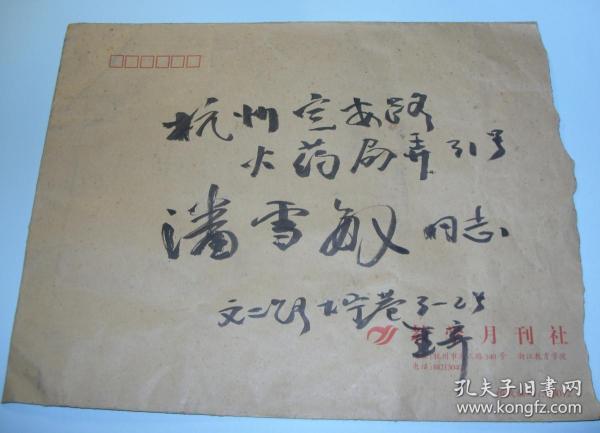 杭州定安路
火药局弄31号
潘雪敏同志
文二路
月刊社
340号 浙江教育学院
电话:
孔夫子旧书网
www.kongfz.com